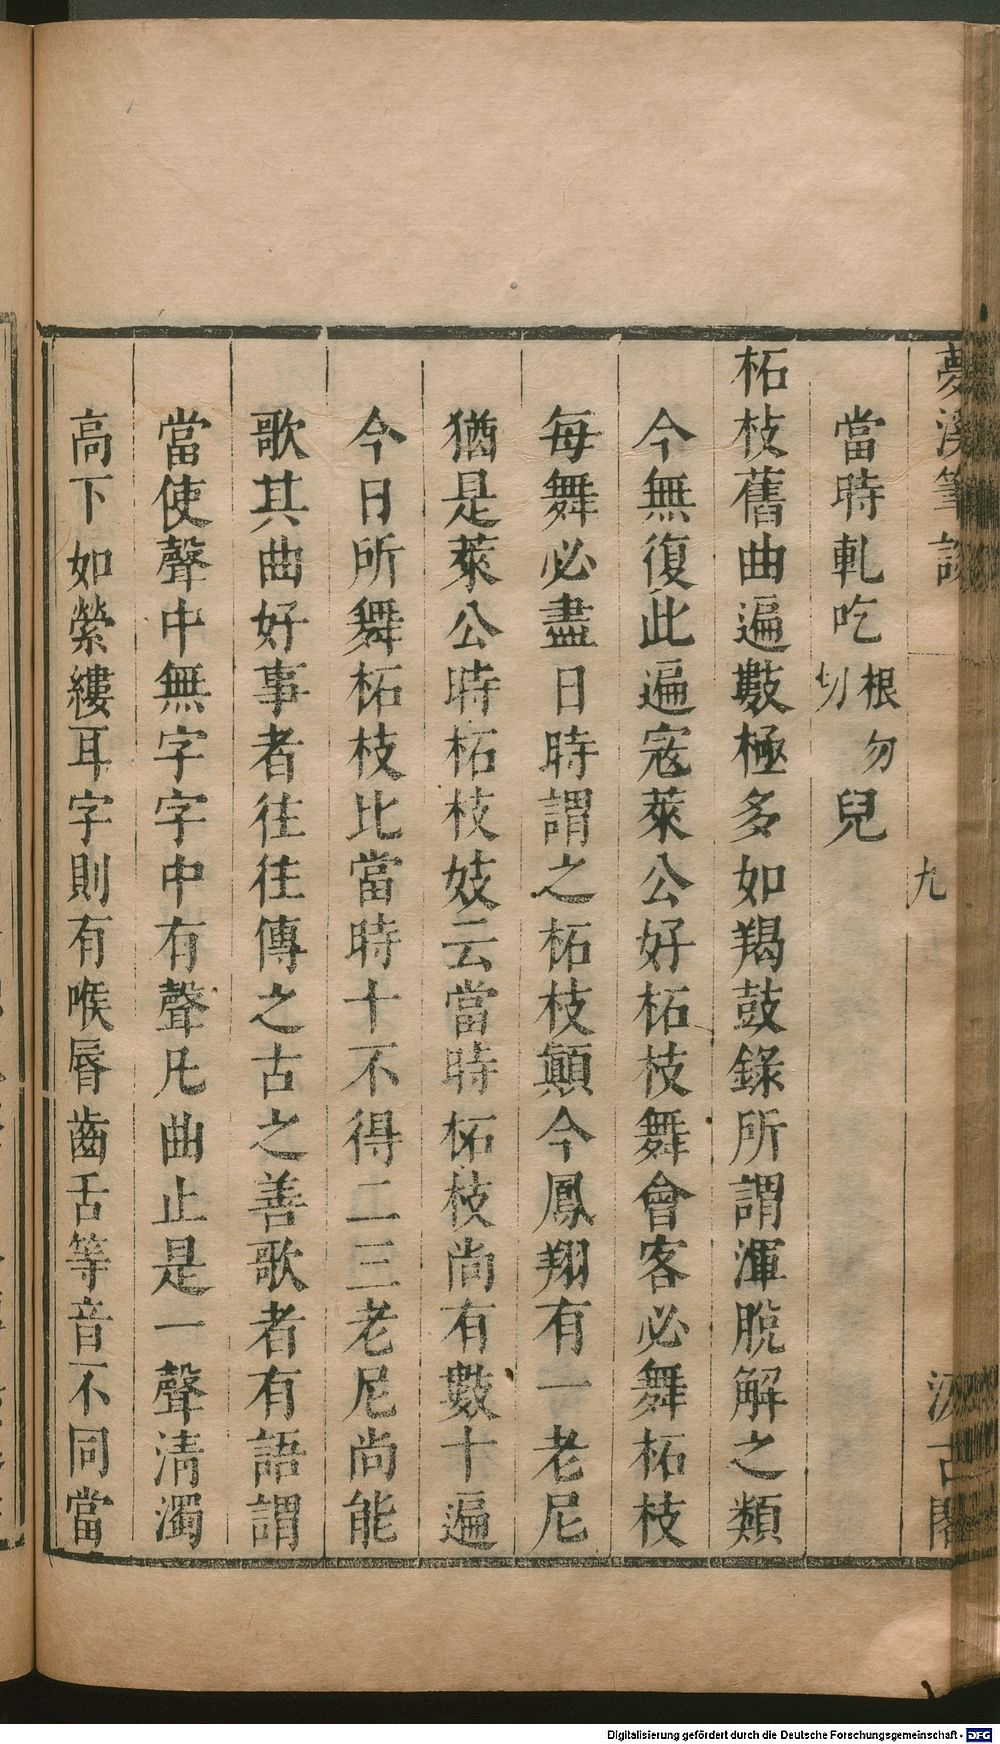 夢溪筆談
九
汲古閣
當時軋吃根勿切兒
柘枝舊曲遍數極多如羯鼓錄所謂渾脫解之類
今無復此遍寇萊公好柘枝舞會客必舞柘枝
每舞必盡日時謂之柘枝顛今鳳翔有一老尼
猶是萊公時柘枝妓云當時柘枝尚有數十遍
今日所舞柘枝比當時十不得二三老尼尚能
歌其曲好事者往往傳之古之善歌者有語謂
當使聲中無字字中有聲凡曲止是一聲清濁
高下如縈縷耳字則有喉唇齒舌等音不同當
Digitalisierung gefördert durch die Deutsche Forschungsgemeinschaft - DFG